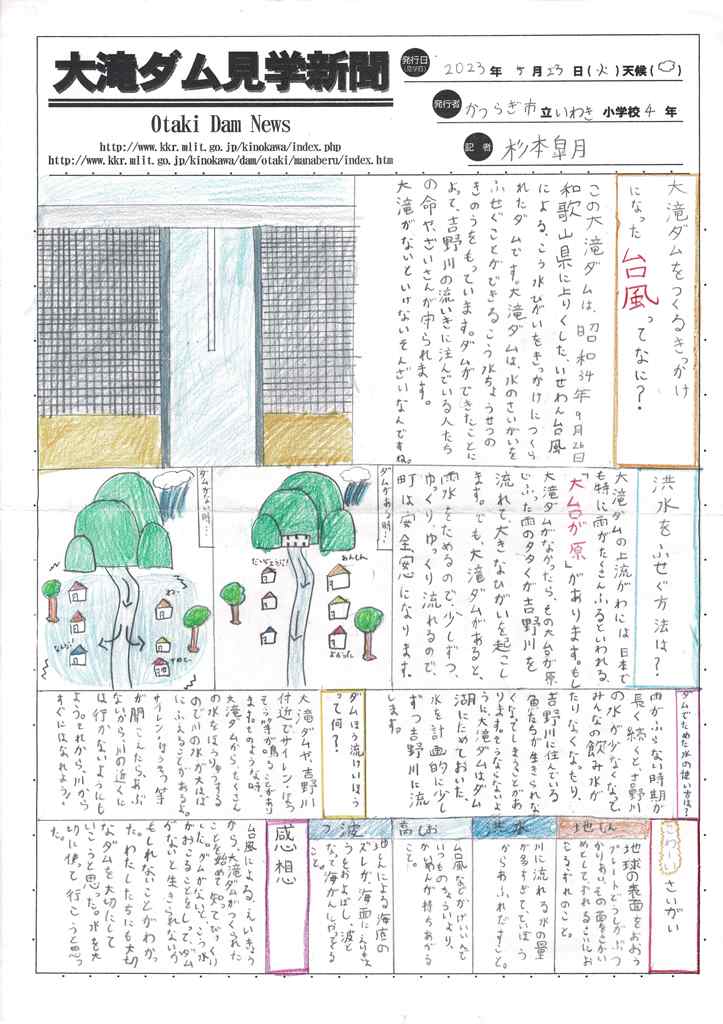 大滝ダム見学新聞
Otaki Dam News
http://www.kkr.mlit.go.jp/kinokawa/index.php
http://www.kkr.mlit.go.jp/kinokawa/dam/otaki/manaberu/index.htm
発行日
(見学日)
2023年5月23日(火)天候( )
発行者
かつらぎ市立いわき小学校4年
記者
杉本皐月
大滝ダムをつくるきっかけ
になった台風ってなに?
この大滝ダムは、昭和34年9月26日
和歌山県に上りくした、いせわん台風
による、こう水ひがいをきっかけにつくら
れたダムです。大滝ダムは、水のさいがいを
ふせぐことができる、こう水ちょうせつの
きのうをもっています。ダムができたことに
よって、吉野川の流いきに注んでいる人たち
の命や、ざいさんが守られます。
大滝がないといけないそんざいなんですね。
洪水をふせぐ方法は?
大滝ダムの上流がわには、日本で
も特に雨がたくさんふるといわれる、
「大台が原」があります。もし
大滝ダムがなかったら、その大台が原
にふった雨の多くが吉野川を
流れて、大きなひがいを起こし
ます。でも、大滝ダムがあると、
雨水をためるので、少しずつ、
ゆっくりゆっくり流れるので、
町は安全安心になります。
ダムがある時…
だいじょうぶ!
あんしん
よかった
ダムがない時…
なんじゃ!
ダムでためた水の使い方は?
雨がふらない時期が
長く続くと、吉野川
の水が少なくなって、
みんなの飲み水が
たりなくなったり、
吉野川に住んでいる
魚たちが生きられな
くなってしまうことがあ
ります。そうならないよ
うに大滝ダムはダム
湖にためておいた、
水を計画的に少し
ずつ吉野川に流
します。
ダムほう流けいほう
って何?
大滝ダムや、吉野川
付近でサイレン・けいほ
そう等が鳴ることがあり
ます。そのような時、
大滝ダムからたくさん
の水をほうりゅうする
ので川の水が大はば
にふえることがあるよ。
サイレン・けいほう等
が聞こえたら、あぶ
ないから川の近くに
は行かないようにし
よう。それから、川から
すぐにはなれよう!
こわーいさいがい
地しん
地球の表面をおおう
プレートどうしがぶつ
かりあい、その面をさかい
めとしておこる
ことによ
りしょうずること。
洪水
川に流れる水の量
が多すぎて、ていぼう
からあふれだすこと。
高しお
台風などがげんいんで
いつものちょういより、
かいめんが持ちあがる
こと。
つ波
地しんによる海底の
ズレが、海面にえいきょ
うをおよぼし、波と
なって海がんにやってくる
こと。
感想
台風による、えいきょう
から、大滝ダムがつくられた
ことを始めて知ってびっくり
した。ダムがないと、こう水
がおこることをしって、ダム
がないと生きられないか
もしれないことがわかっ
た。わたしたちにも大切
なダムを大切にして
いこうと思った。水を大
切に使って行こうと思っ